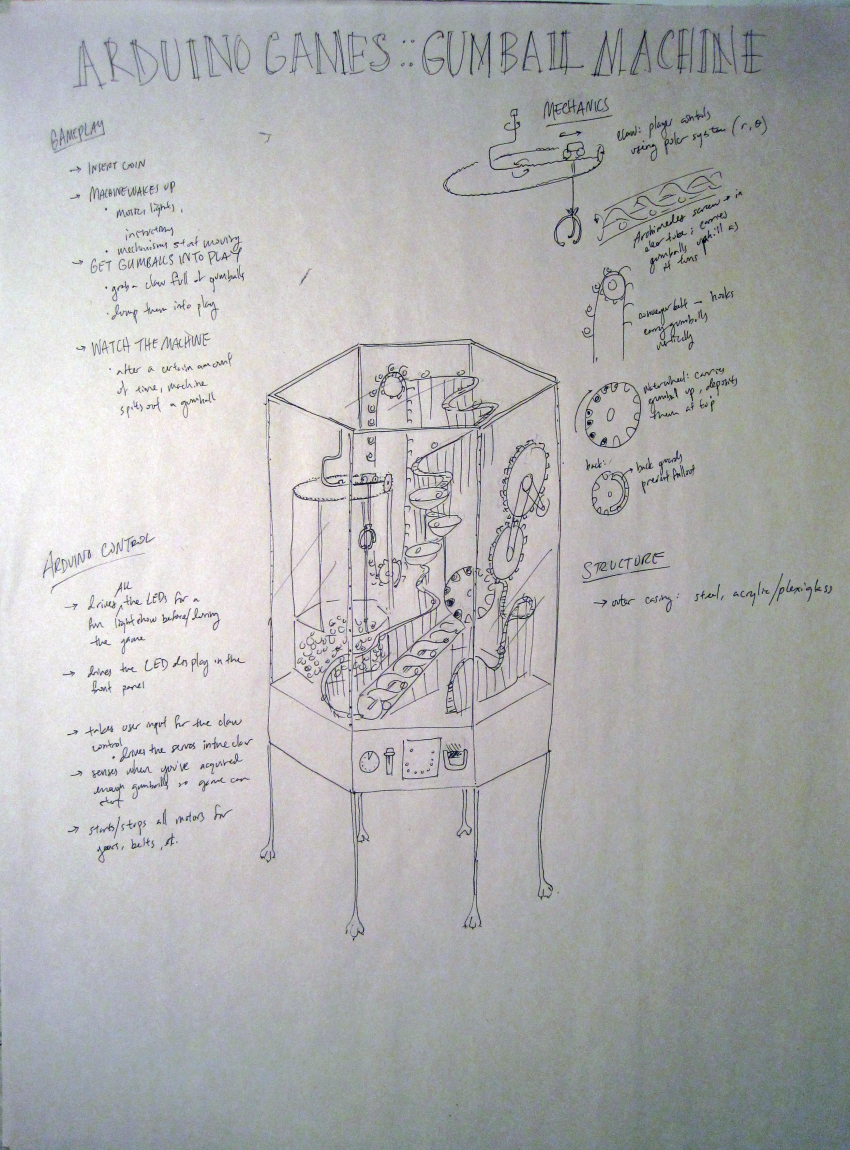 ARDUINO GAMES :: GUMBALL MACHINE
GAMEPLAY
→ INSERT COIN
→ MACHINE WAKES UP
• motors, lights,
• mechanisms start moving
→ GET GUMBALLS INTO PLAY
• grab a claw full of gumballs
• dump them into play
→ WATCH THE MACHINE
• after a certain amount
of time, machine
spits out a gumball
ARDUINO CONTROL
All
→ drives the LEDs for a
fun light show before/during
the game
→ drives the LED display in the
front panel
→ takes user input for the claw
control
• drives the servos in the claw
→ senses when you've acquired
enough gumballs so game can
start
→ starts/stops all motors for
gears, belts, etc.
MECHANICS
claw: player controls
using polar system (r, θ)
Archimedes screw → in
clear tube; carries
gumballs uphill as
it turns
conveyer belt — hooks
carry gumballs
vertically
waterwheel: carries
gumball up, deposits
them at top
back:
back guards
prevent fallout
STRUCTURE
→ outer casing: steel, acrylic/plexiglass